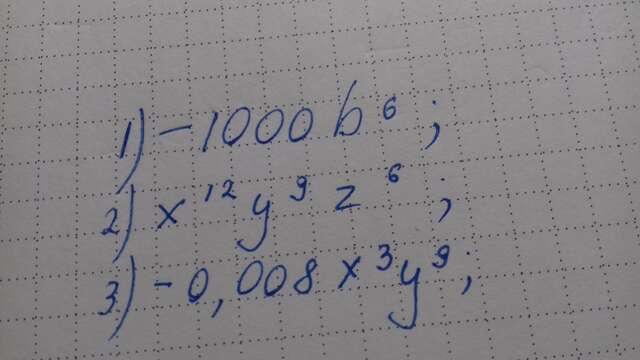 1) -1000 b⁶;
2) x¹²y⁹z⁶;
3) -0,008 x³y⁹;